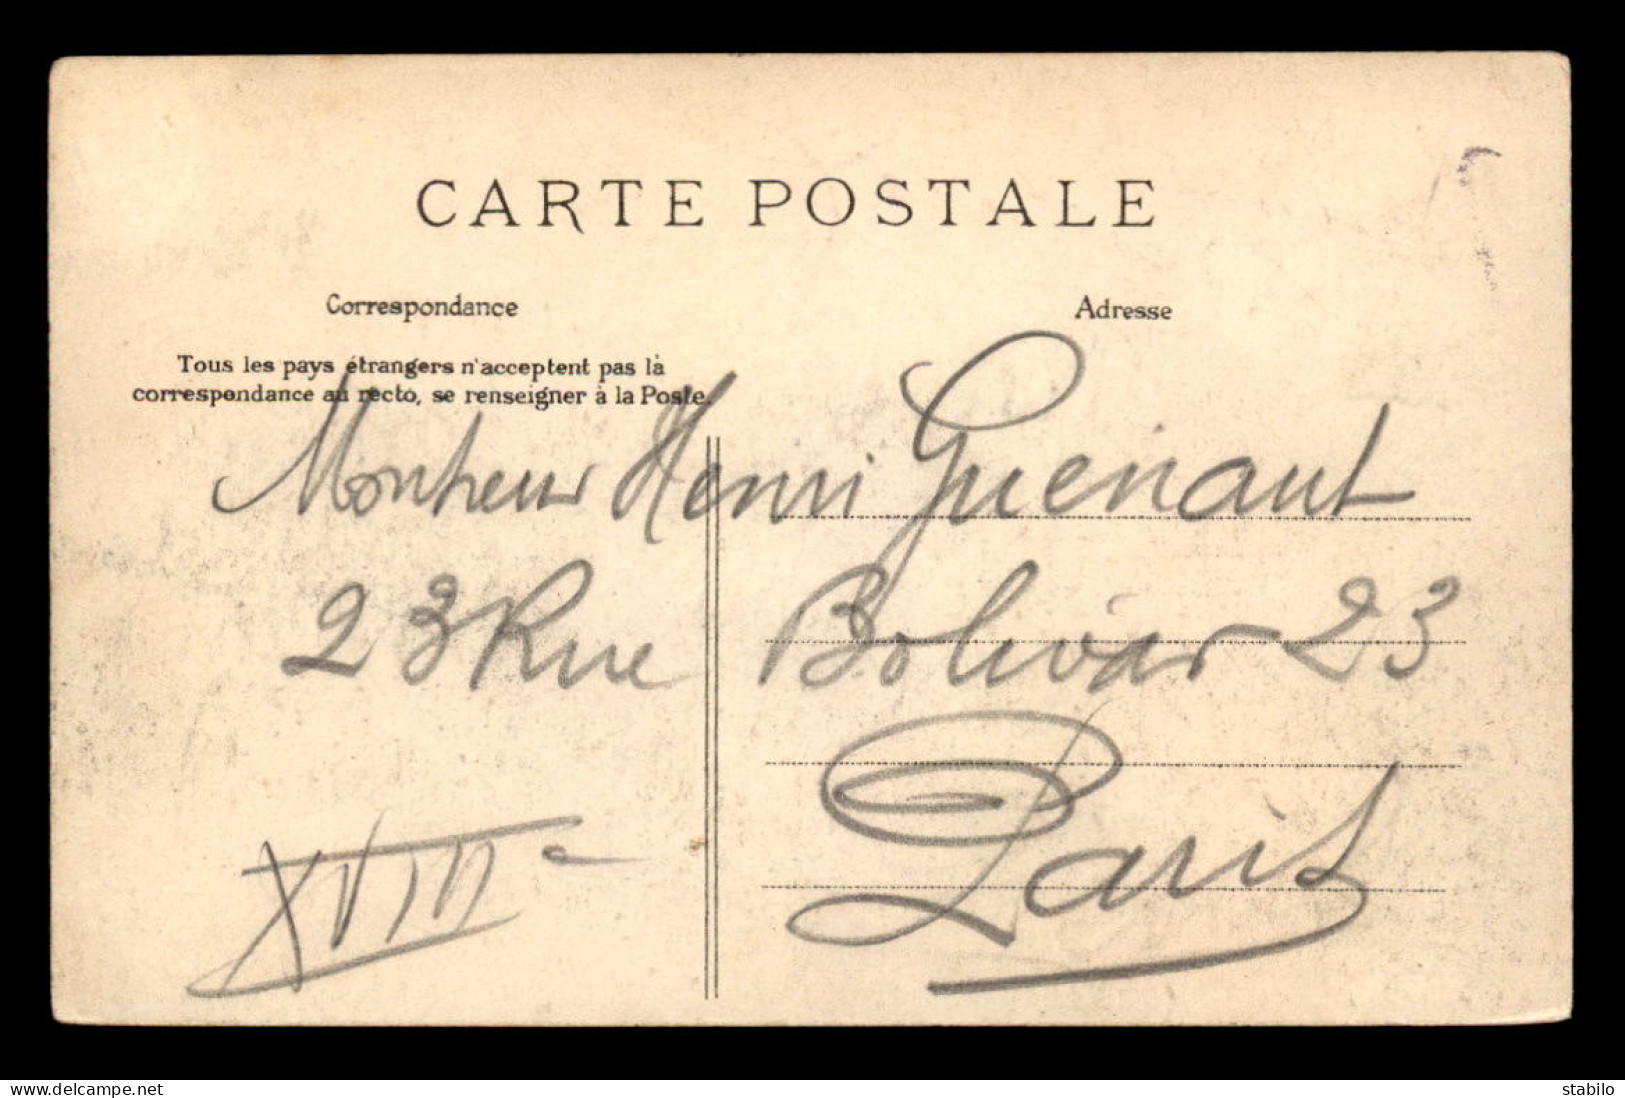 CARTE POSTALE
Correspondance
Adresse
Tous les pays étrangers n'acceptent pas là
correspondance au recto, se renseigner à la Poste.
Monsieur Henri Guenant
23 Rue Bolivar 23
Paris
XVIIIe
www.delcampe.net
stabilo